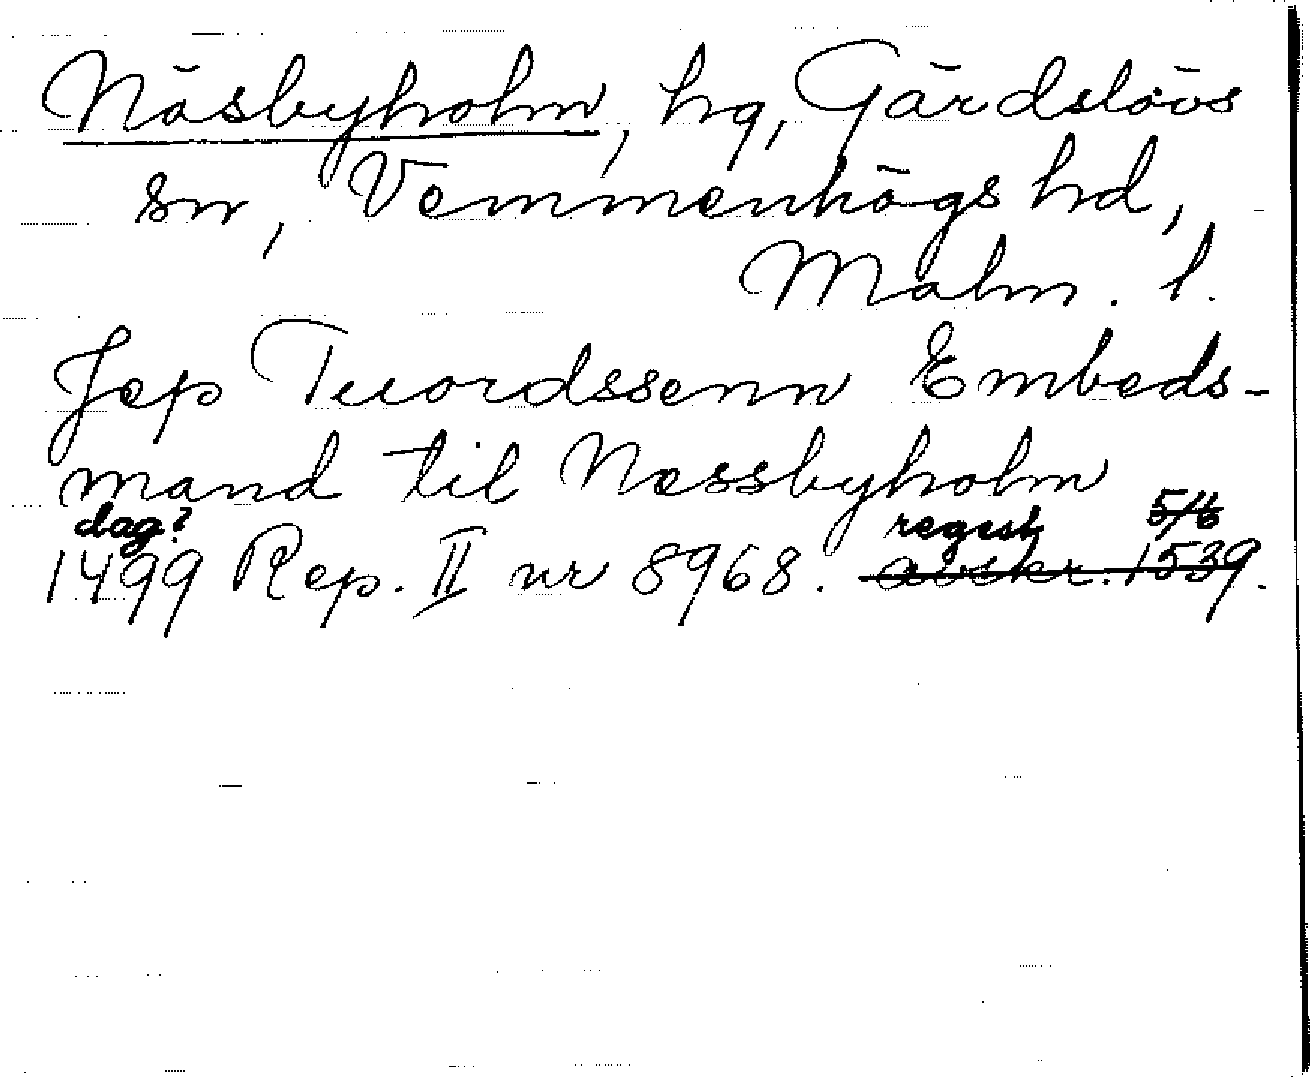 Näsbyholm, hg, Gärdslövs
sn, Vemmenhögs hd,
Malm. l.
Jep Tuordssenn Embeds-
mand til Nessbyholm
dag? regest 5/6
1499 Rep. II nr 8968. avskr. 1539.